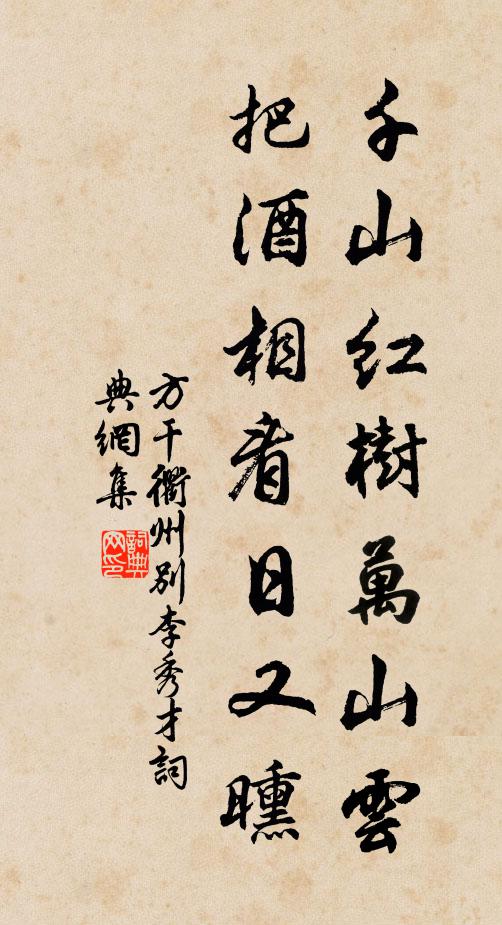 千山紅樹萬山雲
把酒相看日又曛
方干衢州別李秀才詞
典網集
詞典網印